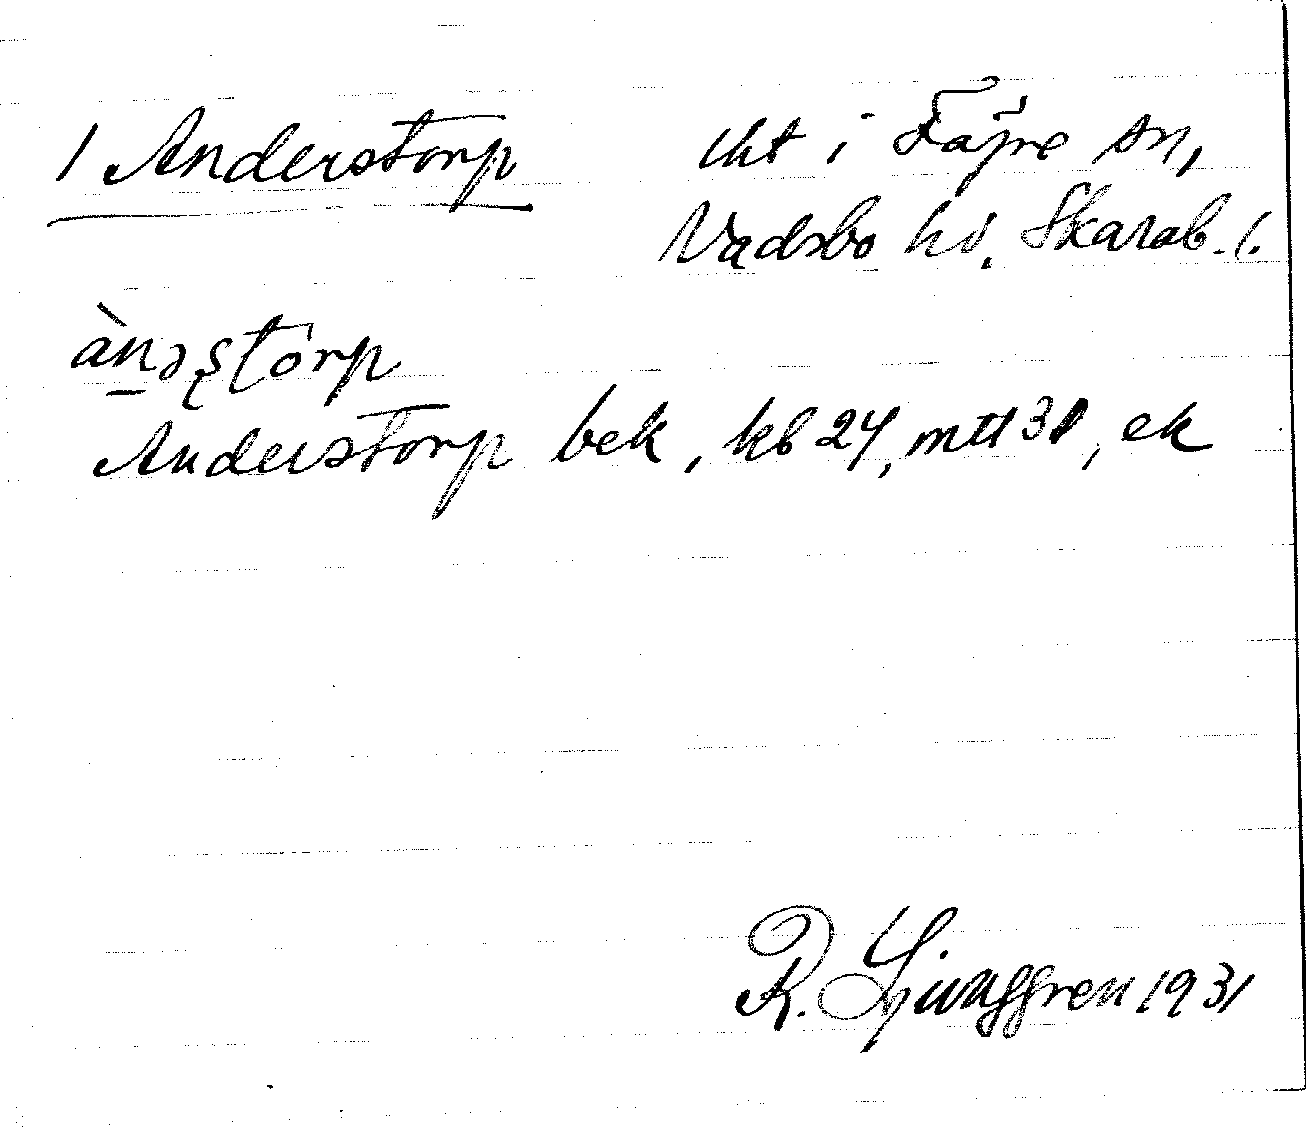 1 Anderstorp
tht i Fägre sn,
Vadsbo hd. Skarab. l.
àn̠əʂtórp
Anderstorp bek, kb 24, mtl 31, ek
R. Ljunggren 1931